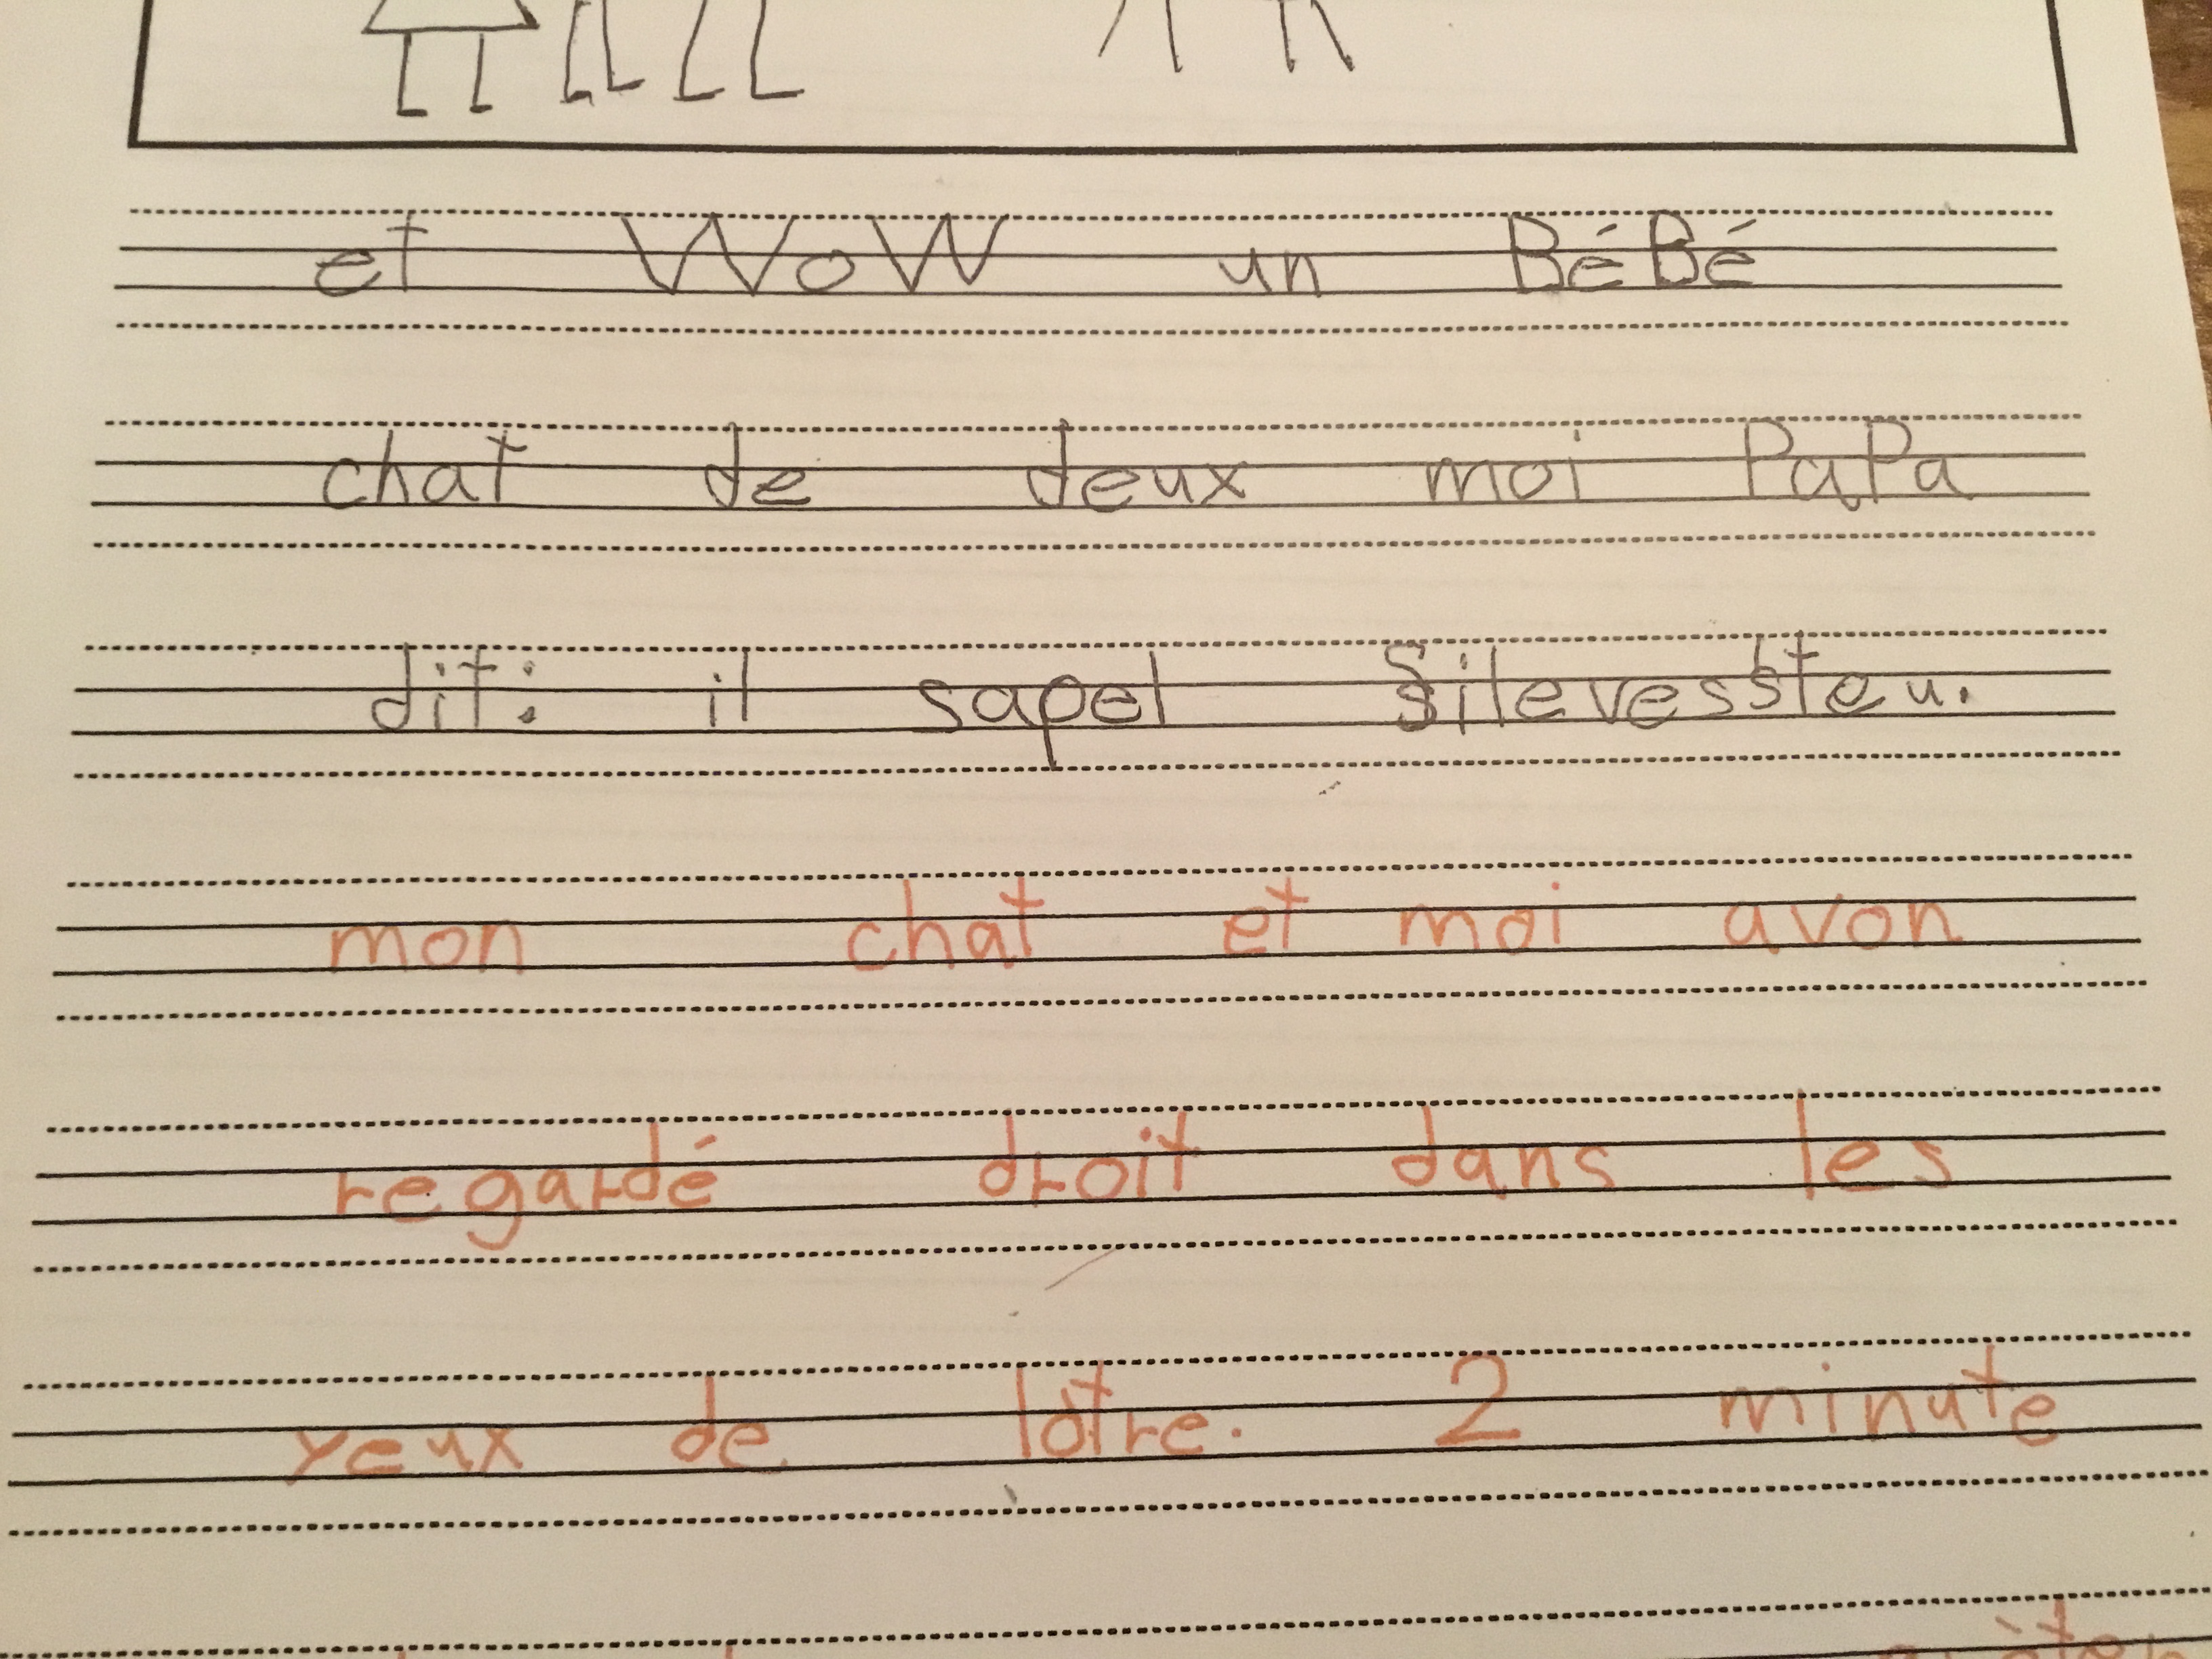 et WoW un BéBé
chat de deux moi PaPa
dit: il sapel Silevessteu.
mon chat et moi avon
regardé droit dans les
yeux de lotre. 2 minute